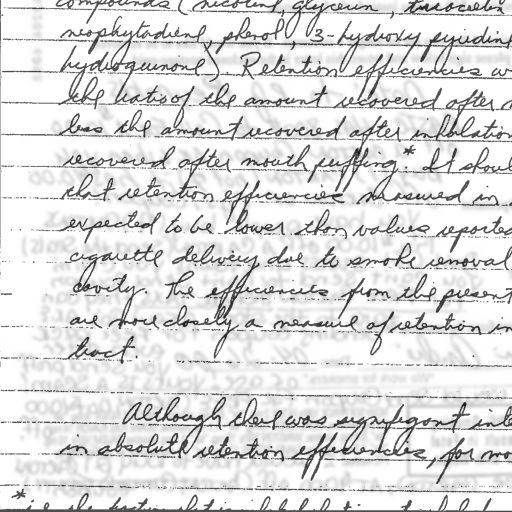 compounds (nicotine, glycerin,
neophytadiene, phenol, 3-hydroxy pyridine
hydroquinone). Retention efficiencies
the ratio of the amount recovered after
less the amount recovered after inhalation
recovered after mouth puffing.* It shoul
that retention efficiencies measured in
expected to be lower than values reported
cigarette delivery due to smoke removal
cavity. The efficiencies from the present
are more closely a measure of retention in
tract.
Although there was significant inte
in absolute retention efficiencies, for mo
*i.e. the